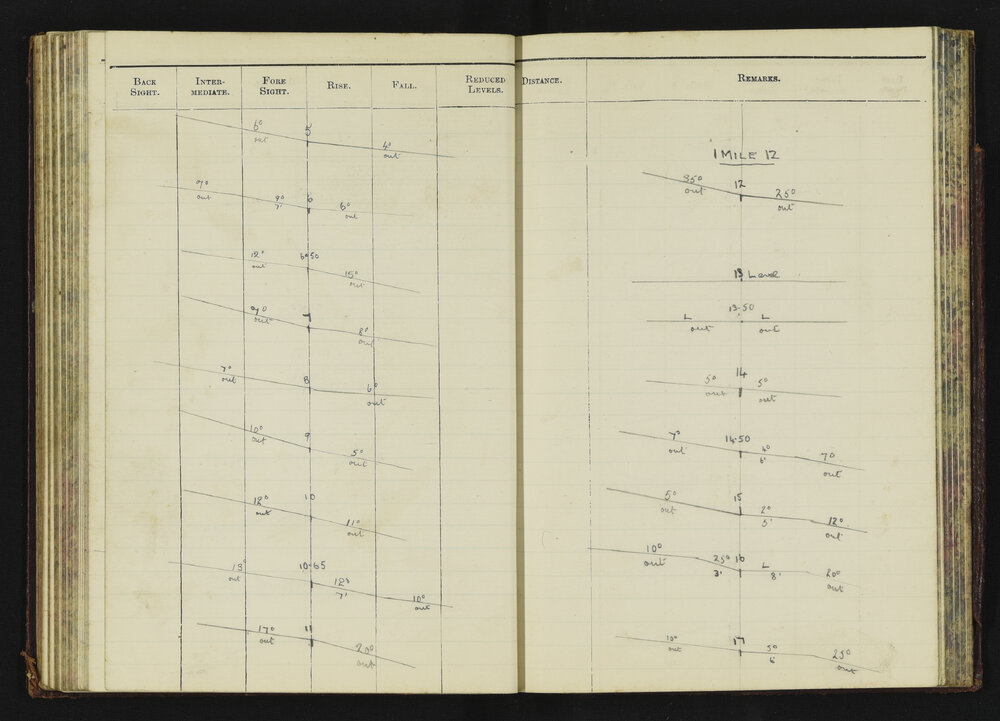 BACK SIGHT. INTER-MEDIATE. FORE SIGHT. RISE. FALL. REDUCED LEVELS.
6° 5 4°
out out
7° 9° 6 6°
out 7' out
12° 6.50 15°
out out
9° 7 8°
out out
7° 8 6°
out out
10° 9 5°
out out
12° 10 11°
out out
13° 10.65 12° 10°
out 7' out
17° 11 20°
out out
DISTANCE. REMARKS.
1 MILE 12
35° 12 25°
out out
13 Level
13.50
L L
out out
14
5° 5°
out out
7° 14.50 4° 7°
out 6' out
5° 15 2° 12°
out 5' out
10° 25° 16 L 20°
out 3' 8' out
10° 17 5° 25°
out 6' out